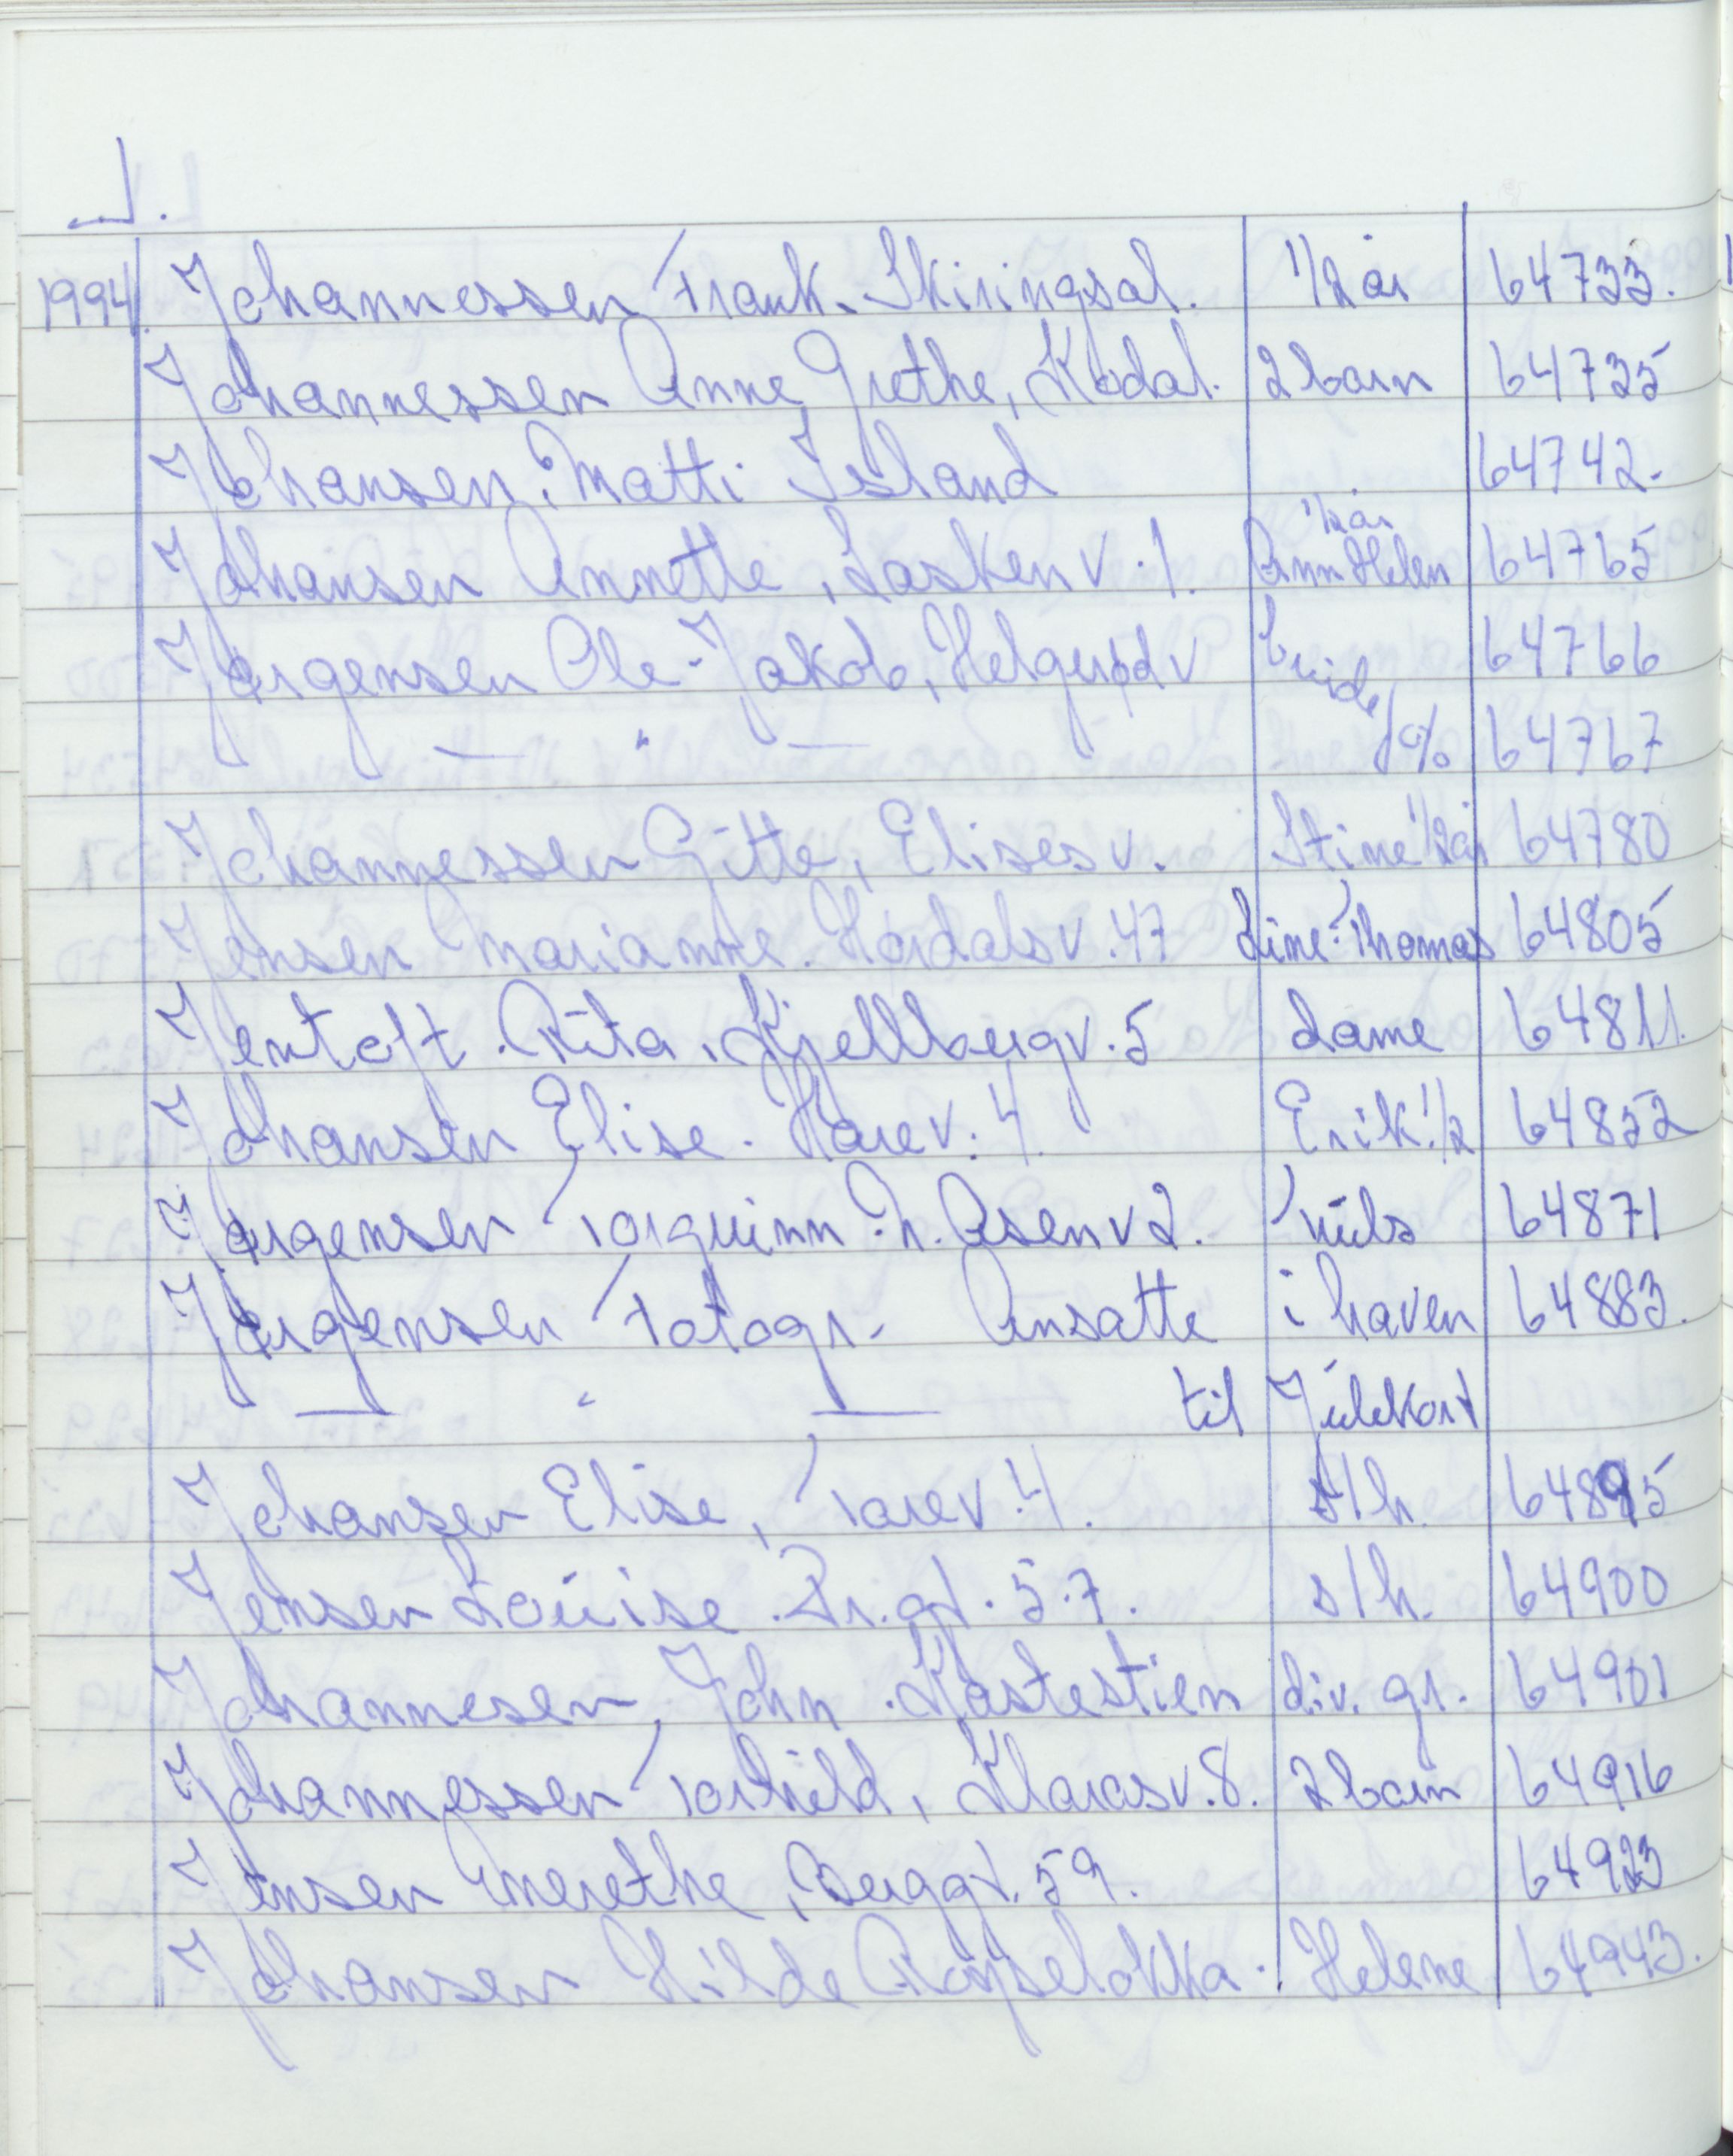 J.
1994. Johannessen Frank. Skiringsal. 1/2 år 64733.
Johannessen Anne Grethe, Kodal. 2 barn 64735
Johansen, Matti Island 64742.
1/2 år
Johansen Annette, Lasken v. 1. Ann Helen 64765
Jørgensen Ole-Jakob, Helgerød v brude 64766
— " — 64767
Johannessen Gitte, Elises v. Stine 1/2 år 64780
Jensen Marianne. Hordals v. 47 Line. Thomas 64805
Jentoft. Rita. Kjellbergv. 5 dame 64811.
Johansen Elise. Harev. 4. Erik 1/2 64852
Jørgensen Torquinn. N. Åsen v 2. Nils 64871
Jørgensen Fotogr. Ansatte i haven 64883.
— " — til Julekort
Johansen Elise, Tarev. 4. s/h. 64895
Jensen Louise. Pr.gt. 57. s/h. 64900
Johannesen, John. Håstestien div. gr. 64901
Johannessen Torhild, Klaras v. 8. 2 barn 64916
Jensen Merethe, Bryggt. 59. 64923
Johansen Hilde Røyseløkka. Helene 64943.